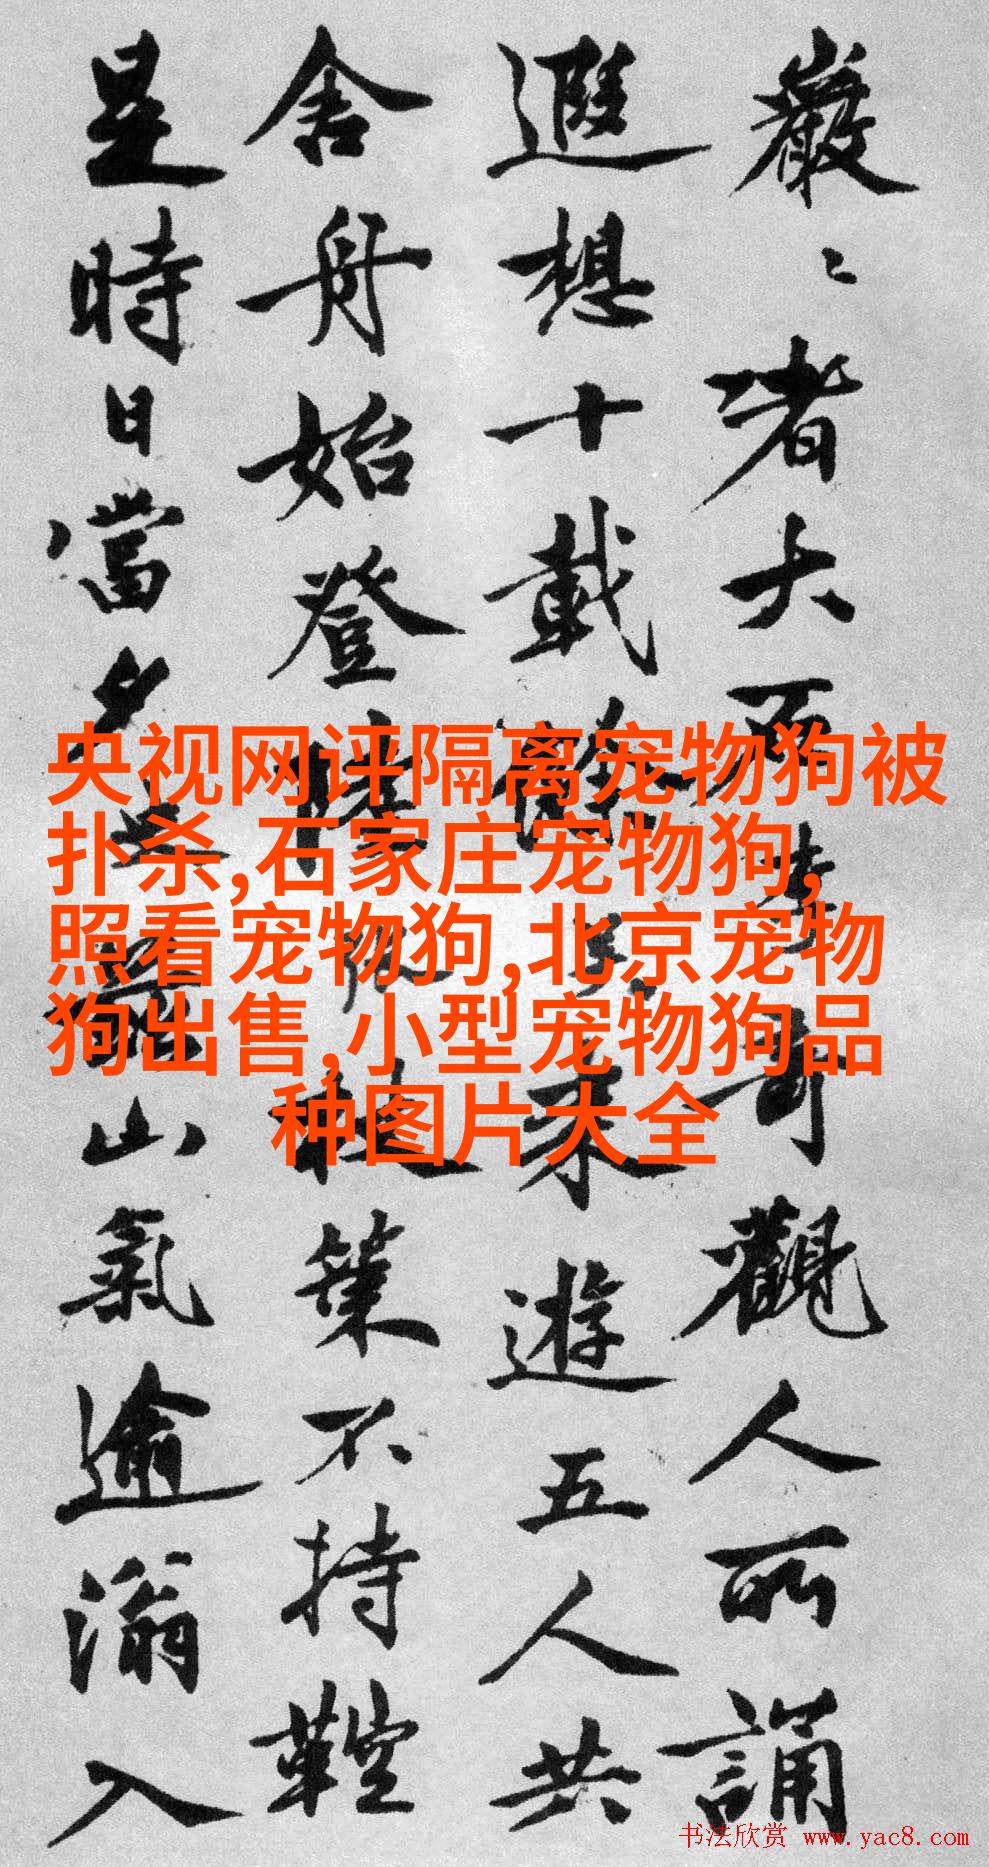 巖〻者大而
觀人所誦
遐想十載
來遊五人共
舍舟始登
策不持鞚
是時日當夕
山氣逾滃入
央视网评隔离宠物狗被
扑杀,石家庄宠物狗,
照看宠物狗,北京宠物
狗出售,小型宠物狗品
种图片大全
书法欣赏 www.yac8.com